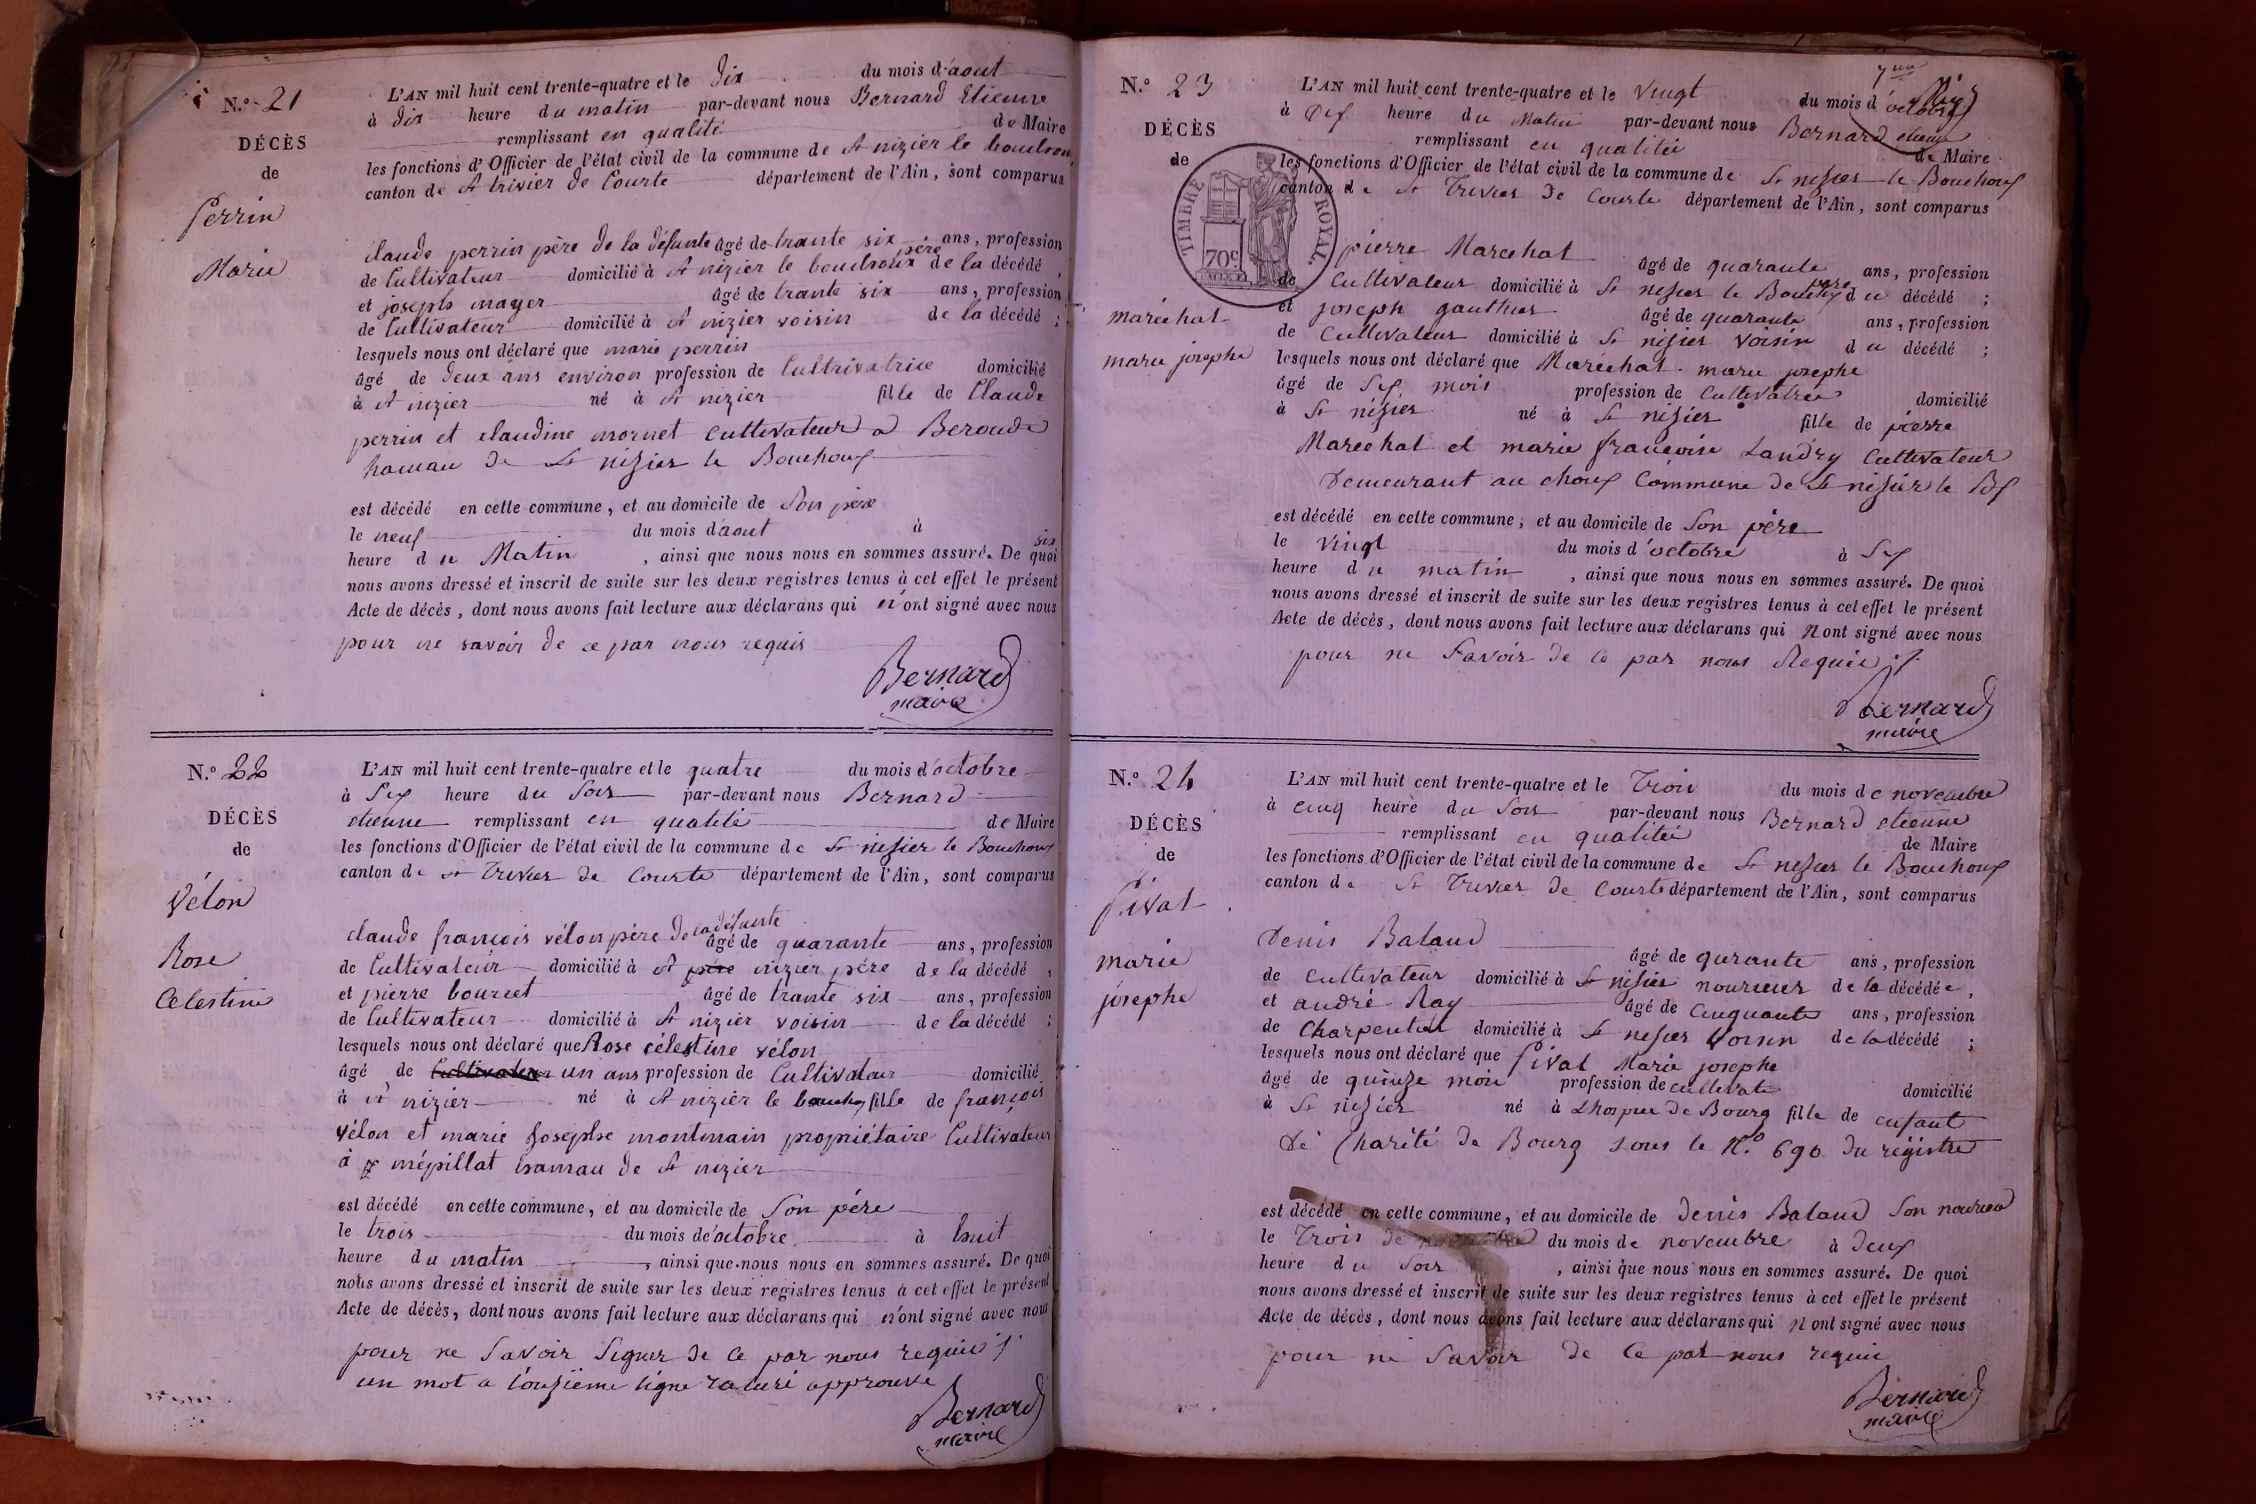 N.º 21
DÉCÈS
de
Perrin
Marie
L'AN mil huit cent trente-quatre et le dix du mois d'aout
à dix heure du matin par-devant nous Bernard Etienne
remplissant en qualité de Maire
les fonctions d'Officier de l'état civil de la commune de St nizier le bouchoux
canton de St trivier de Courte département de l'Ain, sont comparus
claude perrin père de la défunte âgé de trante six ans, profession
de Cultivateur domicilié à St nizier le bouchoux père de la décédé ,
et joseph mayer âgé de trante six ans, profession
de Cultivateur domicilié à St nizier voisin de la décédé ;
lesquels nous ont déclaré que marie perrin
âgé de deux ans environ profession de Cultrivatrice domicilié
à St nizier né à St nizier fille de Claude
perrin et claudine mornet cultivateur a Beroude
hamau de St nisier le Bouchoux
est décédé en cette commune, et au domicile de Son père
le neuf du mois d'aout à six
heure du Matin , ainsi que nous nous en sommes assuré. De quoi
nous avons dressé et inscrit de suite sur les deux registres tenus à cet effet le présent
Acte de décès, dont nous avons fait lecture aux déclarans qui n'ont signé avec nous
pour ne savoir de ce par nous requis
Bernard
maire
N.º 22
DÉCÈS
de
Vélon
Rose
Celestine
L'AN mil huit cent trente-quatre et le quatre du mois d'octobre
à Six heure du Soir par-devant nous Bernard
etienne remplissant en qualité de Maire
les fonctions d'Officier de l'état civil de la commune de St nisier le Bouchoux
canton de St Trivier de Courte département de l'Ain, sont comparus
claude francois vélon père de la défunte âgé de quarante ans, profession
de Cultivateur domicilié à St père nizier père de la décédé ,
et pierre bourcet âgé de trante six ans, profession
de Cultivateur domicilié à St nizier voisin de la décédé ;
lesquels nous ont déclaré que Rose célestine vélon
âgé de Cultivateur un ans profession de Cultivateur domicilié
à St nizier né à St nizier le bouchoy fille de françois
vélon et marie Josephe montmain propriétaire Cultivateur
à mépillat hamau de St nizier
est décédé en cette commune, et au domicile de Son père
le trois du mois de octobre à huit
heure du matin , ainsi que nous nous en sommes assuré. De quoi
nous avons dressé et inscrit de suite sur les deux registres tenus à cet effet le présent
Acte de décès, dont nous avons fait lecture aux déclarans qui n'ont signé avec nous
pour ne Savoir Signer de Ce par nous requis
un mot a l'ouzième ligne raturé approuvé
Bernard
maire
N.º 23
DÉCÈS
de
maréchat
marie josephe
TIMBRE ROYAL
70c
L'AN mil huit cent trente-quatre et le Vingt du mois d'octobre
à Dix heure du Matin par-devant nous Bernard etienne
remplissant en qualitée de Maire
les fonctions d'Officier de l'état civil de la commune de St nisier le Bouchoux
canton de St Trivier De Courte département de l'Ain, sont comparus
pierre Marechat âgé de quarante ans, profession
de Cultivateur domicilié à St nisier le Bouchox père du décédé ;
et joseph gauthier âgé de quarante ans, profession
de Cultivateur domicilié à St nisier Voisin du décédé ;
lesquels nous ont déclaré que Maréchat marie josephe
âgé de Six mois profession de Cultivatrice domicilié
à St nisier né à St nisier fille de pierre
Marechat et marie françoise Landry Cultivateur
Demeurant au choux Commune de St nisier le Bx
est décédé en cette commune, et au domicile de Son père
le Vingt du mois d'octobre à Six
heure du matin , ainsi que nous nous en sommes assuré. De quoi
nous avons dressé et inscrit de suite sur les deux registres tenus à cet effet le présent
Acte de décès, dont nous avons fait lecture aux déclarans qui N'ont signé avec nous
pour ne Savoir de Ce par nous Requie
Bernard
maire
N.º 24
DÉCÈS
de
Pivat
marie
josephe
L'AN mil huit cent trente-quatre et le Troi du mois de novembre
à cinq heure du Soir par-devant nous Bernard etienne
remplissant en qualitée de Maire
les fonctions d'Officier de l'état civil de la commune de St nisier le Bouchoux
canton de St Trivier De Courte département de l'Ain, sont comparus
Denis Bataud âgé de qurante ans, profession
de Cultivateur domicilié à St nisier nouricier de la décédée ,
et andré Ray âgé de Cinquante ans, profession
de Charpentier domicilié à St nisier Voisin de la décédé ;
lesquels nous ont déclaré que Pivat Marie josephe
âgé de quinze mois profession de cultivate domicilié
à St nisier né à Lhospice De Bourg fille de enfant
De Charité De Bourg Sous le N.º 690 Du régistre
est décédé en cette commune, et au domicile de denis Bataud Son nouricier
le Trois du mois de novembre à Deux
heure du Soir , ainsi que nous nous en sommes assuré. De quoi
nous avons dressé et inscrit de suite sur les deux registres tenus à cet effet le présent
Acte de décès, dont nous avons fait lecture aux déclarans qui N'ont signé avec nous
pour ne Savoir de Ce par nous requie
Bernard
maire